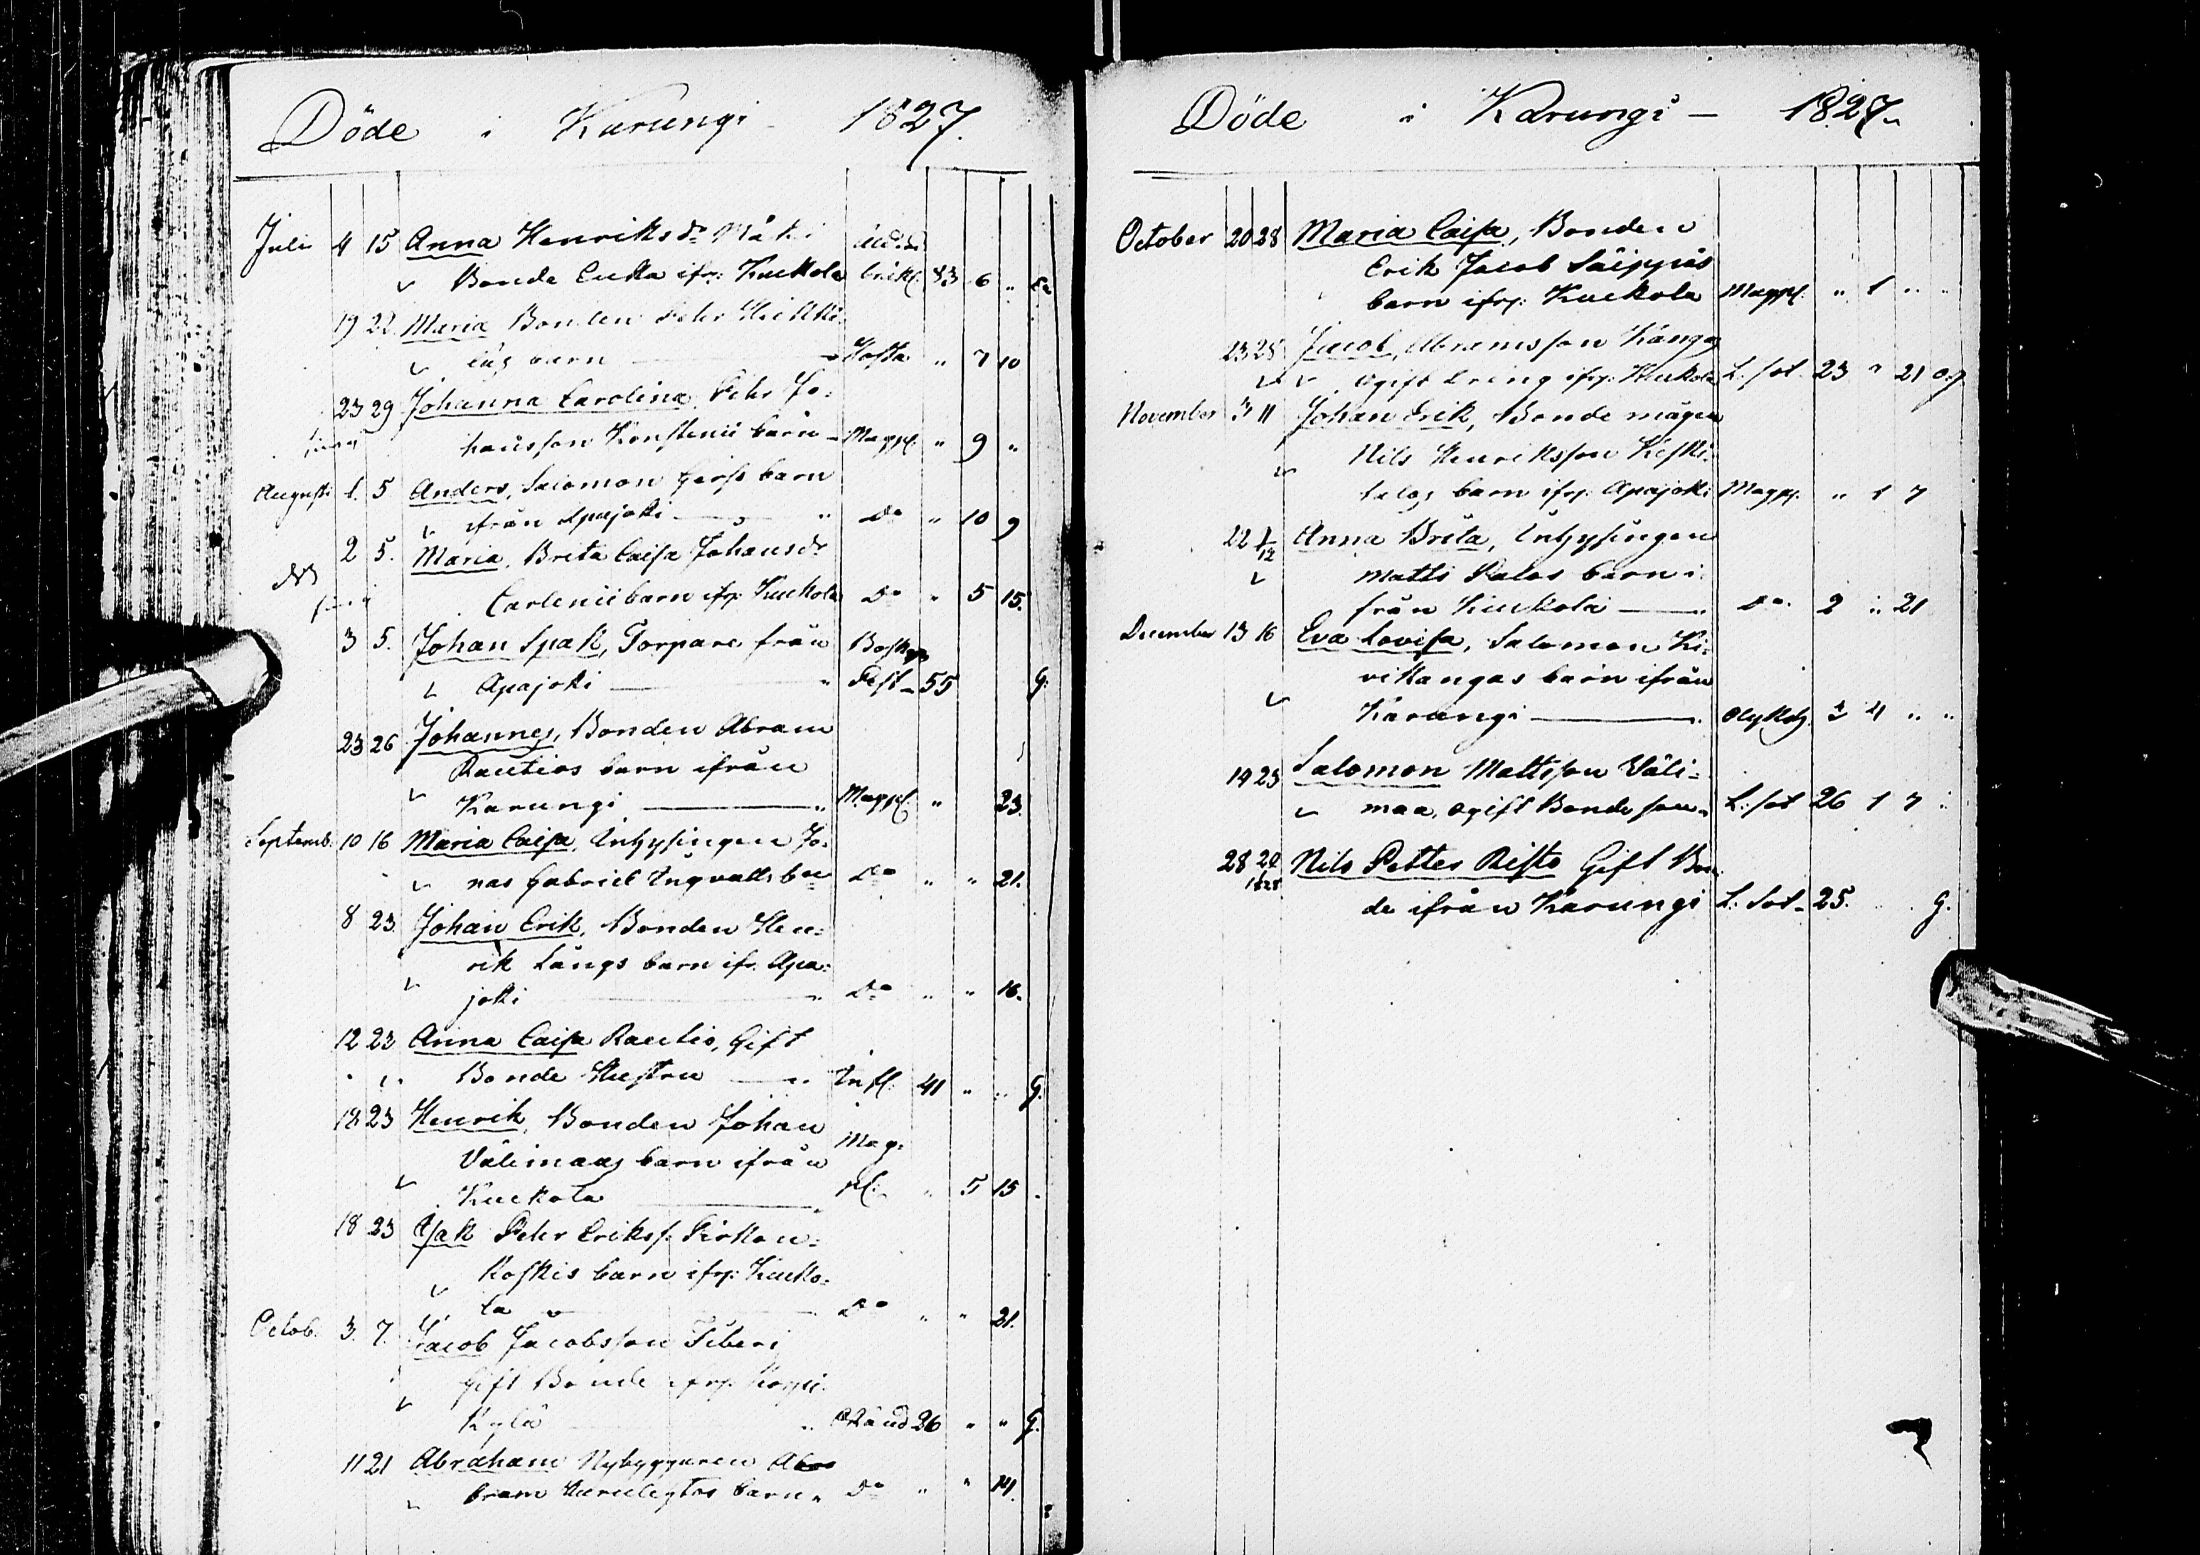 Döde i Karungi 1827.
Juli 4 15 Anna Henriksdr Mäki
Bonde Enka ifr: Kuckola 83 6 „ En
19 22 Maria Bonden Pehr
barn Hosta „ 7 10
23 29 Johanna Carolina, Pehr Jo-
hansson barn Magpl. „ 9 „
Augusti 1. 5 Anders, Salomon barn
ifrån Apajoki „ Do „ 10 9
2 5. Maria, Brita Caisa Johansdr
Carlenii barn ifr: Kuckola Do „ 5 15.
3 5. Johan Spak, Torpare från
Apajoki „ 55 G:
23 26 Johannes, Bonden Abram
Rautios barn ifrån
Karungi „ Magpl. „ 23.
Septemb. 10 16 Maria Caisa, Inhysingen Jo-
nas Gabriel Ingvalls bn Do „ „ 21.
8 23 Johan Erik, Bonden Hen-
rik Långs barn ifr. Apa-
joki „ Do „ „ 16.
12 23 Anna Caisa Rautio, Gift
Bonde Hustru „ Infl. 41 „ „ G.
18 23 Henrik, Bonden Johan Mag-
Välimaas barn ifrån
Kuckola pl. „ 5 15 „
18 23 Isak Pehr Erikss.
koskis barn ifr: Kucko-
la Do „ „ 21.
Octob. 3. 7. Jacob Jacobsson
Gift Bonde ifr: Korpi-
kylä „ 26 „ „ G.
11 21 Abraham Nybyggaren Ab
bram barn „ Do „ „ 14.
Döde i Karungi — 1827.
October 20 28 Maria Caisa, Bonden
Erik Jacob
barn ifr: Kuckola Magpl. „ 1 „ „
23 28 Jacob, Abramsson Kangas
ogift dräng ifr: Kuckola L: sot. 23 „ 21 og
November 3 11 Johan Erik, Bonde mågen
Nils Henriksson Keski-
talos barn ifr: Apajoki Magpl. „ 1 7
22 2/12 Anna Brita, Inhysingen
Matts Palos barn i-
från Kuckola „ Do. 2 „ 21
December 13 16 Eva Lovisa, Salomon Ki-
vikangas barn ifrån
Karungi „ Olyksh. 3 4 „ „
14 23 Salomon Mattsson Väli-
maa, ogift Bonde son „ L: sot 26 1 7 „
28 Nils Petter Risto Gift Bon-
de ifrån Karungi L. Sot. 25. G.